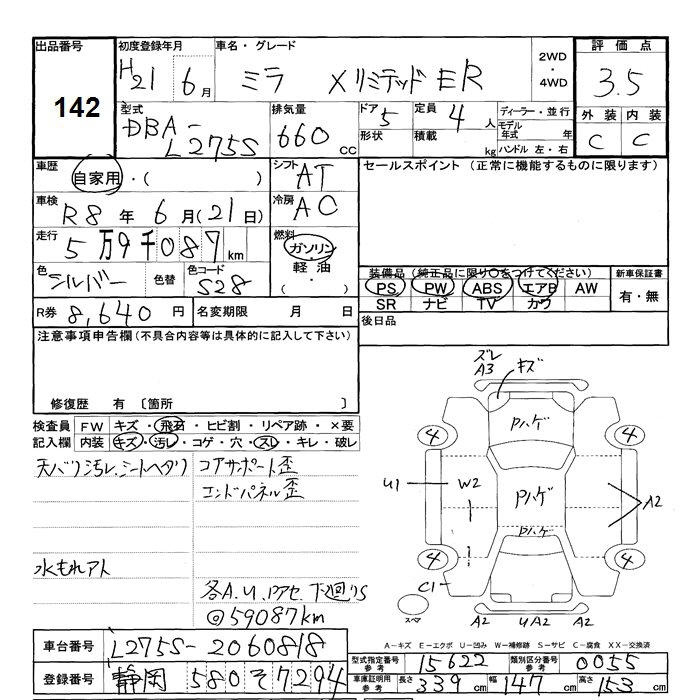 出品番号 142
初度登録年月 H21 6月
車名・グレード ミラ Xリミテッド ER
2WD ・ 4WD
評価点 3.5
外装 内装
C C
型式 DBA-L275S
排気量 660 CC
ドア 5 定員 4 人
形状 積載 kg
ディーラー・並行
モデル年式 年
ハンドル 左・右
車歴 自家用・( )
シフト AT
セールスポイント (正常に機能するものに限ります)
車検 R8年 6月(21日)
冷房 AC
走行 5万9千087km
燃料 ガソリン・軽油 ( ・ )
色 シルバー 色替 色コード S28
装備品 (純正品に限り○をつけてください) 新車保証書
PS PW ABS エアB AW 有・無
SR ナビ TV カワ
R券 8,640 円 名変期限 月 日
後日品
注意事項申告欄(不具合内容等は具体的に記入して下さい)
修復歴 有 〔箇所 〕
検査員 FW キズ・飛石・ヒビ割・リペア跡・×要
記入欄 内装 キズ・汚レ・コゲ・穴・スレ・キレ・破レ
天バリ汚レ、シートヘタリ コアサポート歪
エンドパネル歪
水もれアト
各A.U.Pアセ 下廻りS
@59087km
ズレ
A3 キズ
Pハゲ
4 4
U1 W2 Pハゲ A2
Pハゲ
4 4
C1
スペア A2 UA2 A2
A-キズ E-エクボ U-凹み W-補修跡 S-サビ C-腐食 XX-交換済
車台番号 L275S-2060818
型式指定番号 参考 15622 類別区分番号 参考 0055
登録番号 静岡 580 そ 7294
車庫証明用 参考 長さ 339 cm 幅 147 cm 高さ 153 cm